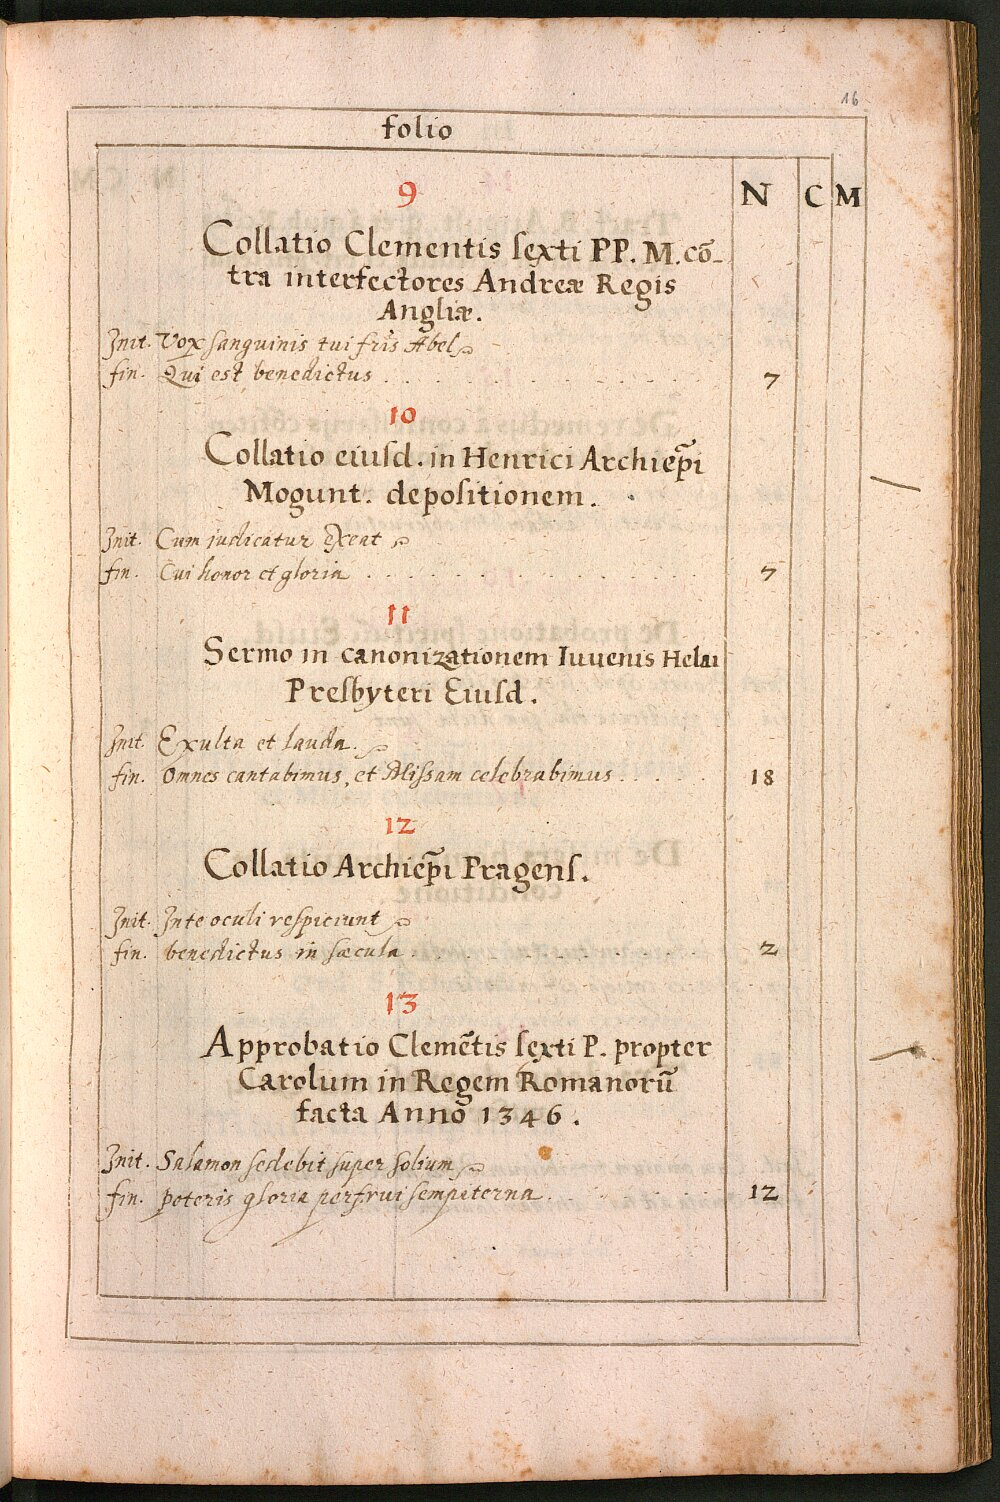 16
folio
N C M
9
Collatio Clementis ſexti PP. M. cō-
tra interfectores Andreæ Regis
Angliæ.
Init. Vox ſanguinis tui fr̄is Abel
fin. Qui est benedictus . . . . . . . . . . 7
10
Collatio eiuſd. in Henrici Archiep̄i
Mogunt. depoſitionem.
Init. Cum iudicatur exeat
fin. Cui honor et gloria . . . . . . . . . . 7
11
Sermo in canonizationem Iuvenis Helai
Preſbyteri Eiuſd.
Init. Exulta et lauda.
fin. Omnes cantabimus, et Miſsam celebrabimus . . . . 18
12
Collatio Archiep̄i Pragenſ.
Init. In te oculi reſpiciunt
fin. benedictus in ſæcula . . . . . . . . 2
13
Approbatio Clemētis ſexti P. propter
Carolum in Regem Romanorū
facta Anno 1346.
Init. Salamon ſedebit ſuper ſolium
fin. poteris gloria perfrui ſempiterna . . . . 12